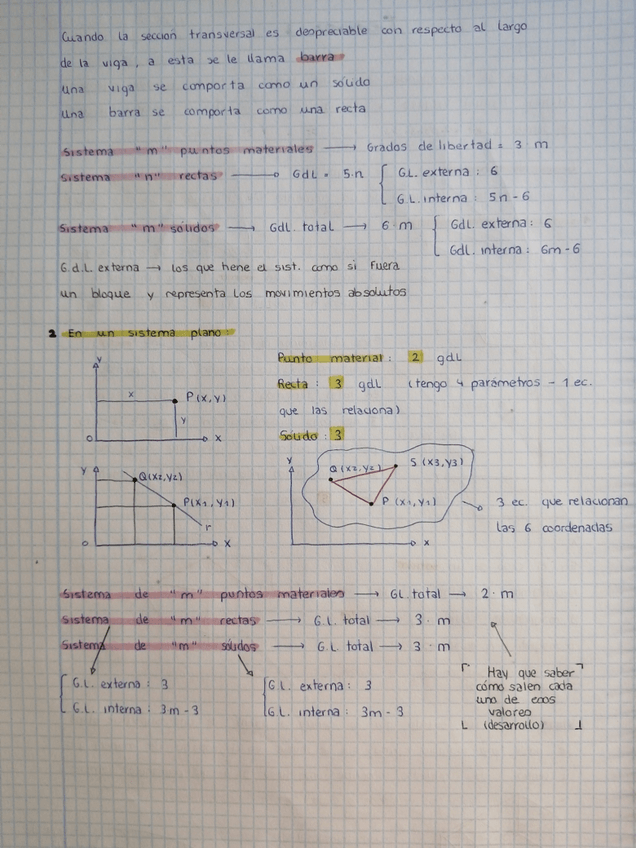 Cuando la sección transversal es despreciable con respecto al largo
de la viga, a esta se le llama barra
Una viga se comporta como un sólido
Una barra se comporta como una recta
Sistema "m" puntos materiales → Grados de libertad = 3·m
Sistema "n" rectas → GdL = 5·n { G.L. externa: 6
G.L. interna: 5n - 6
Sistema "m" sólidos → GdL total → 6·m { GdL externa: 6
GdL interna: 6m - 6
G.d.L. externa → los que tiene el sist. como si fuera
un bloque y representa los movimientos absolutos
2 En un sistema plano:
Punto material: 2 gdL
Recta: 3 gdL (tengo 4 parámetros - 1 ec.
que las relaciona)
Sólido: 3
Y
x
P(x,y)
Y
O
X
Y
Q(x2,y2)
P(x1,y1)
r
O
X
Y
Q(x2,y2)
S (x3,y3)
P (x1,y1)
X
3 ec. que relacionan
las 6 coordenadas
Sistema de "m" puntos materiales → GL total → 2·m
Sistema de "m" rectas → G.L. total → 3·m
Sistema de "m" sólidos → G.L total → 3·m
{ G.L. externa: 3
G.L. interna: 3m - 3
{ G.L. externa: 3
G.L. interna: 3m - 3
Hay que saber
cómo salen cada
uno de esos
valores
(desarrollo)